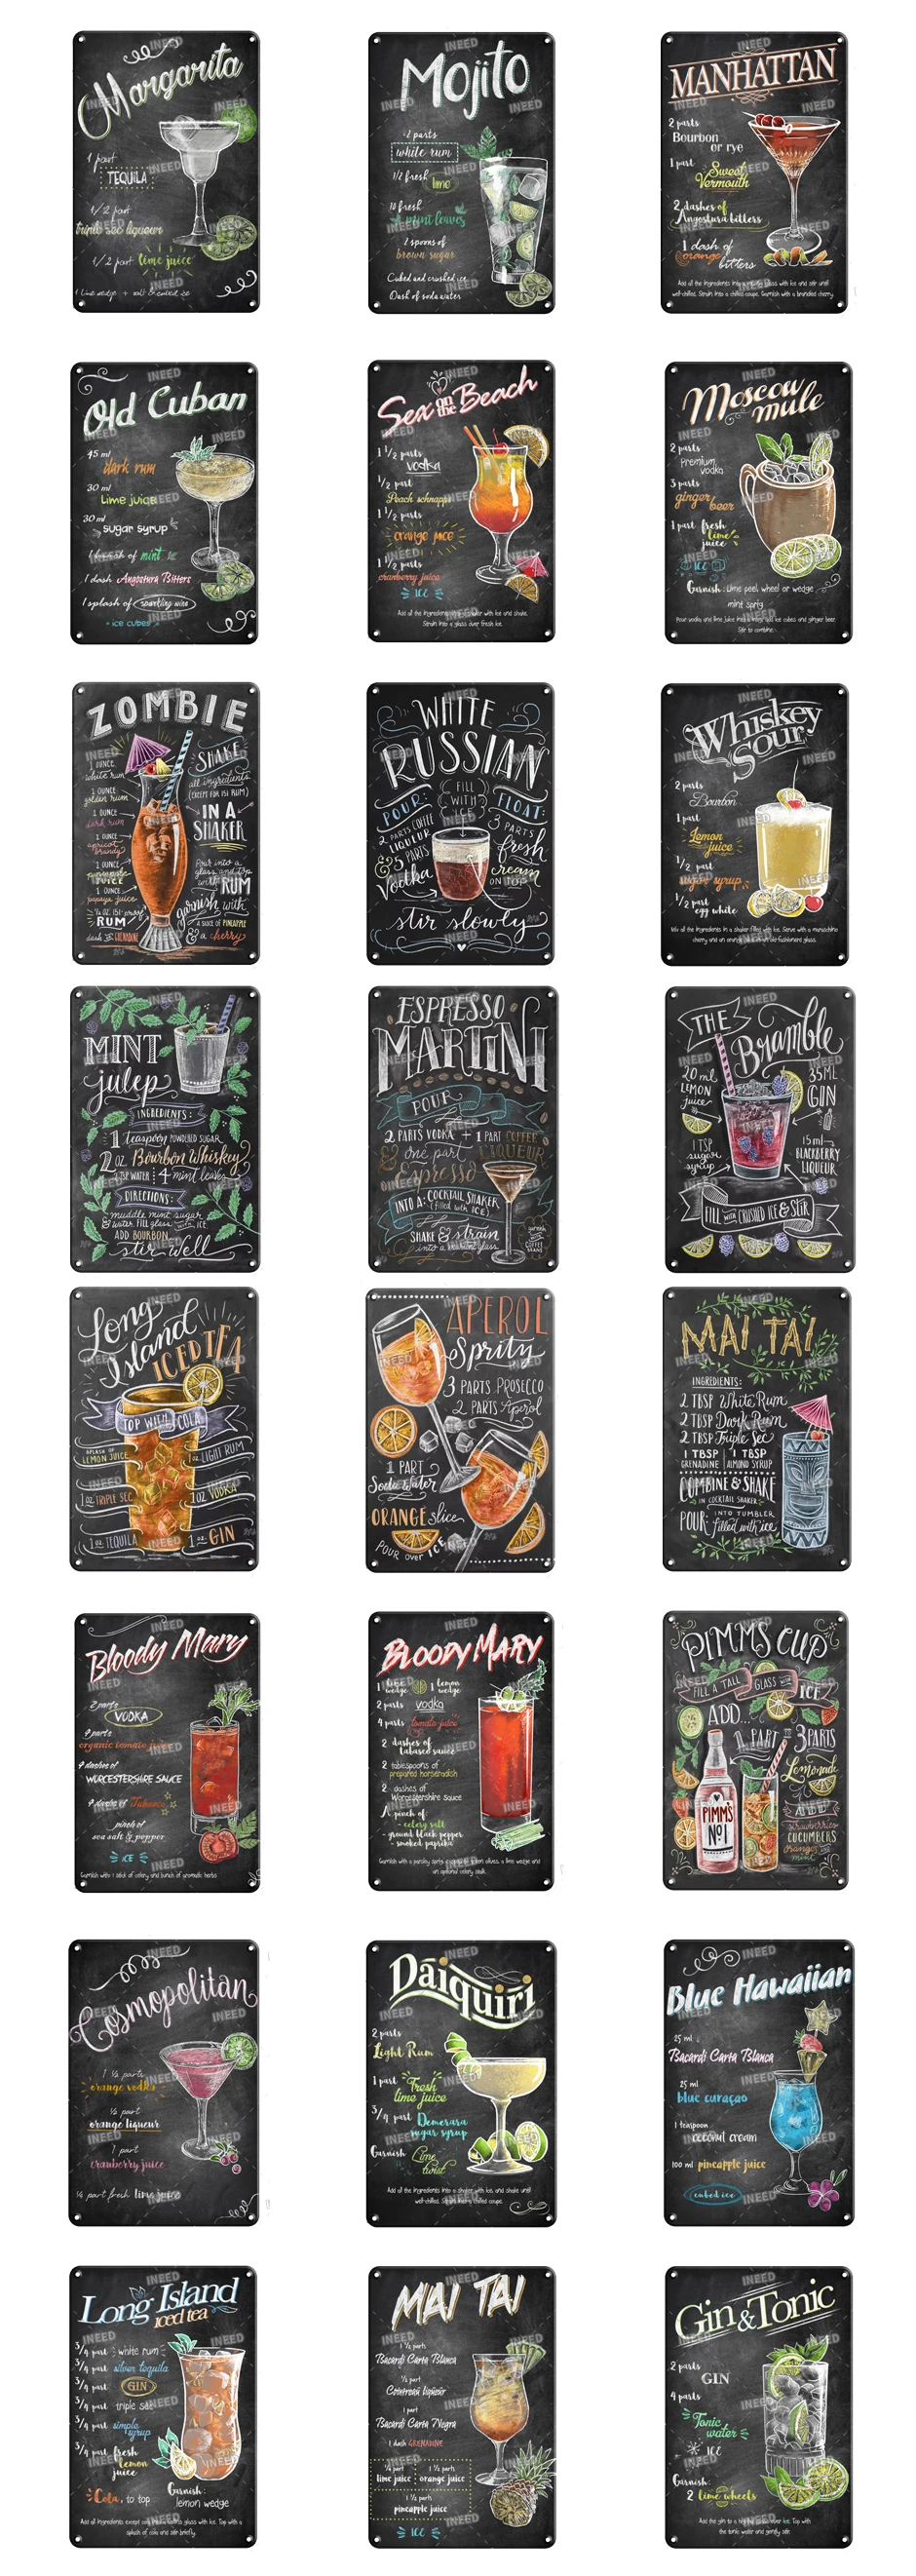 Margarita
1 part
TEQUILA
1/2 part
triple sec liqueur
1/2 part lime juice
1 Lime wedge + salt & cubed ice
Mojito
2 parts
white rum
1/2 fresh
lime
10 fresh
mint leaves
2 spoons of
brown sugar
Cubed and crushed ice
Dash of soda water
MANHATTAN
2 parts
Bourbon
or rye
1 part
Sweet
Vermouth
2 dashes of
Angostura bitters
1 dash of
orange
bitters
Old Cuban
45 ml
dark rum
30 ml
Lime juice
30 ml
sugar syrup
of mint
1 dash Angostura Bitters
1 splash of sparkling wine
+ ice cubes
Sex on the Beach
1 1/2 parts
vodka
1/2 part
Peach schnapps
1 1/2 parts
orange juice
1 1/2 parts
cranberry juice
ICE
Add all the ingredients into a shaker with ice and shake.
Strain into a glass over fresh ice.
Moscow
mule
2 parts
premium
vodka
3 parts
ginger
beer
1 part fresh
lime
juice
ICE
Garnish: Lime peel wheel or wedge
mint sprig
Pour vodka and lime juice into a mug, add ice cubes and ginger beer.
Stir to combine.
ZOMBIE
1 OUNCE
white rum
1 OUNCE
golden rum
1 OUNCE
dark rum
1 OUNCE
apricot
brandy
1 OUNCE
pineapple
JUICE
1 OUNCE
papaya juice
1/2 OZ. 151-proof
RUM
dash of GRENADINE
SHAKE
all ingredients
(EXCEPT FOR 151 RUM)
IN A
SHAKER
Pour into a
glass and top
with RUM
garnish with
A SLICE OF PINEAPPLE
& a cherry
WHITE
RUSSIAN
FILL
WITH
ICE
POUR:
2 PARTS COFFEE
LIQUEUR
& 5 PARTS
Vodka
FLOAT:
3 PARTS
fresh
cream
ON TOP
stir slowly
Whiskey
Sour
2 parts
Bourbon
1 part
Lemon
juice
1/2 part
sugar syrup
1/2 part
egg white
MINT
julep
INGREDIENTS:
1 teaspoon POWDERED SUGAR
2 OZ. Bourbon Whiskey
2 TSP WATER 4 mint leaves
DIRECTIONS:
muddle mint, sugar
& water. FILL glass with ICE,
ADD BOURBON
stir Well
ESPRESSO
MARTINI
POUR
2 PARTS VODKA + 1 PART COFFEE
LIQUEUR
& one part
Espresso
INTO A: COCKTAIL SHAKER
(filled with ICE)
SHAKE & strain
into a martini glass
garnish
with
COFFEE
BEANS
THE
Bramble
20 ml
LEMON
juice
35ML
GIN
1 TSP
sugar
syrup
15 ml
BLACKBERRY
LIQUEUR
FILL with CRUSHED ICE & STIR
Long
Island
ICED TEA
TOP WITH COLA
SPLASH OF
LEMON JUICE
1 oz. LIGHT RUM
1 oz TRIPLE SEC
1 OZ VODKA
1 oz TEQUILA
1 oz GIN
APEROL
Spritz
3 PARTS PROSECCO
2 PARTS Aperol
1 PART
Soda Water
ORANGE slice
POUR over ICE
MAI TAI
INGREDIENTS:
2 TBSP White Rum
2 TBSP Dark Rum
2 TBSP Triple Sec
1 TBSP
GRENADINE
1 TBSP
ALMOND SYRUP
COMBINE & SHAKE
IN COCKTAIL SHAKER
POUR: INTO TUMBLER
filled with ice
Bloody Mary
2 parts
VODKA
4 parts
organic tomato juice
4 dashes of
WORCESTERSHIRE SAUCE
4 dashes of Tabasco
pinch of
sea salt & pepper
ICE
BLOODY MARY
1 lime
wedge
1 lemon
wedge
2 parts vodka
4 parts tomato juice
2 dashes of
tabasco sauce
2 tablespoons of
prepared horseradish
2 dashes of
Worcestershire sauce
1 pinch of:
- celery salt
- ground black pepper
- smoked paprika
PIMM'S CUP
FILL A TALL GLASS with ICE
ADD...
1 PART
PIMM'S
No 1
3 PARTS
Lemonade
ADD
strawberries
CUCUMBERS
oranges
mint
Cosmopolitan
1 1/2 parts
orange vodka
1/2 part
orange liqueur
1 part
cranberry juice
1/4 part fresh lime juice
Daiquiri
2 parts
Light Rum
1 part
Fresh
lime juice
3/4 part
Demerara
sugar syrup
Garnish
Lime
twist
Add all the ingredients into a shaker with ice and shake until
well-chilled. Strain into a chilled coupe.
Blue Hawaiian
25 ml
Bacardi Carta Blanca
25 ml
blue curaçao
1 teaspoon
coconut cream
100 ml pineapple juice
cubed ice
Long Island
iced tea
3/4 part white rum
3/4 part silver tequila
3/4 part GIN
3/4 part triple sec
3/4 part simple
syrup
3/4 part fresh
lemon
juice
Cola, to top
Garnish:
lemon wedge
MAI TAI
1 1/2 parts
Bacardi Carta Blanca
1/2 part
Cointreau liqueur
1 part
Bacardi Carta Negra
1 dash GRENADINE
1/4 part
lime juice
1 1/2 parts
orange juice
1 1/2 parts
pineapple juice
ICE
Gin & Tonic
2 parts
GIN
4 parts
Tonic
water
ICE
Garnish:
2 lime wheels
INEED